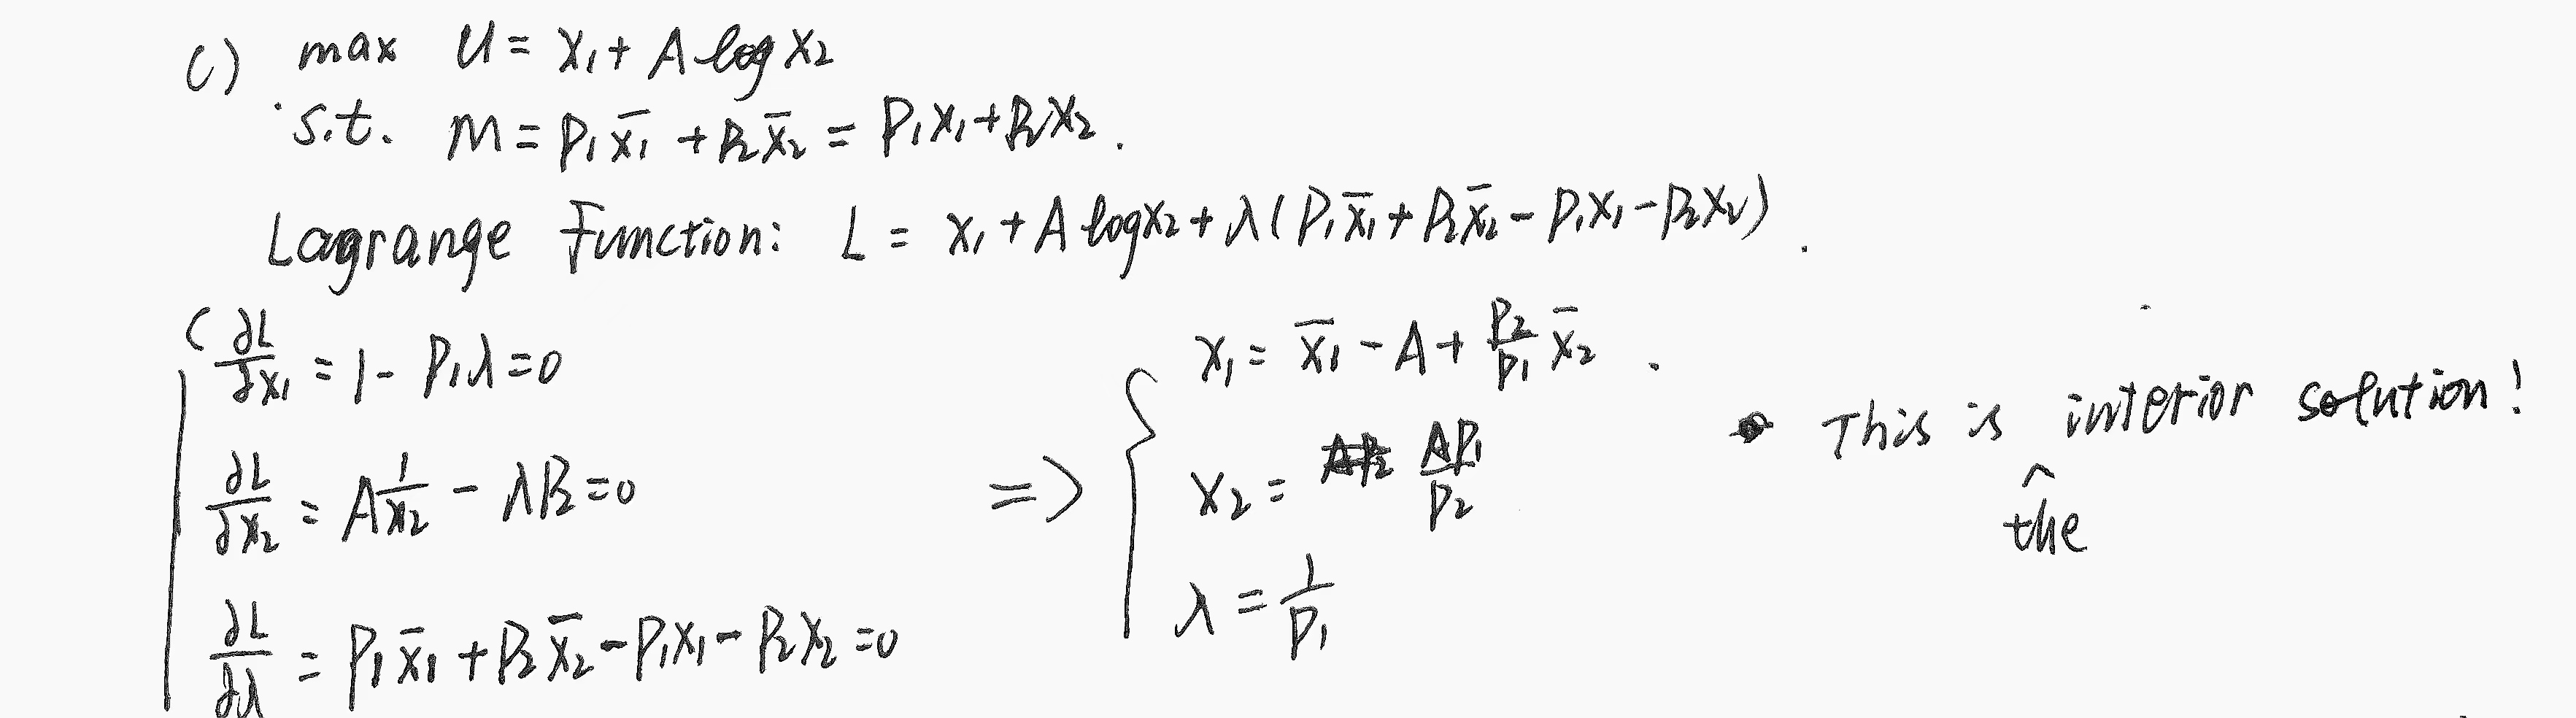 c) max U = x₁ + A log x₂
s.t. M = P₁x̄₁ + P₂x̄₂ = P₁x₁ + P₂x₂.
Lagrange Function: L = x₁ + A log x₂ + λ(P₁x̄₁ + P₂x̄₂ - P₁x₁ - P₂x₂).
∂L/∂x₁ = 1 - P₁λ = 0
∂L/∂x₂ = A 1/x₂ - λP₂ = 0
∂L/∂λ = P₁x̄₁ + P₂x̄₂ - P₁x₁ - P₂x₂ = 0
=> { x₁ = x̄₁ - A + P₂/P₁ x̄₂.
x₂ = AP₁/P₂
λ = 1/P₁
This is ^ interior solution!
the